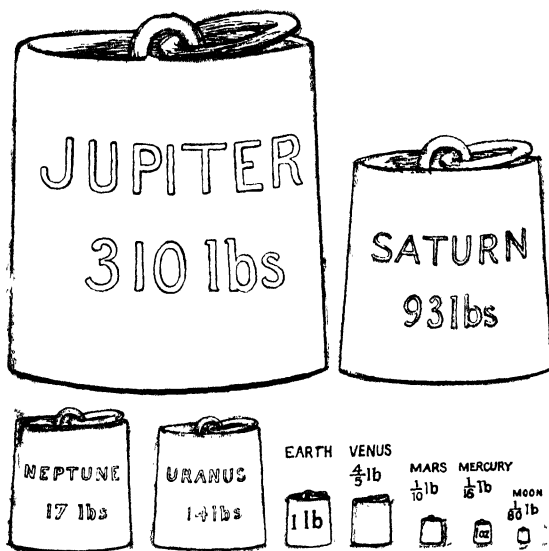 JUPITER
310 lbs
SATURN
93 lbs
NEPTUNE
17 lbs
URANUS
14 lbs
EARTH
1 lb
VENUS
4/5 lb
MARS
1/10 lb
MERCURY
1/16 lb
1oz
MOON
1/80 lb